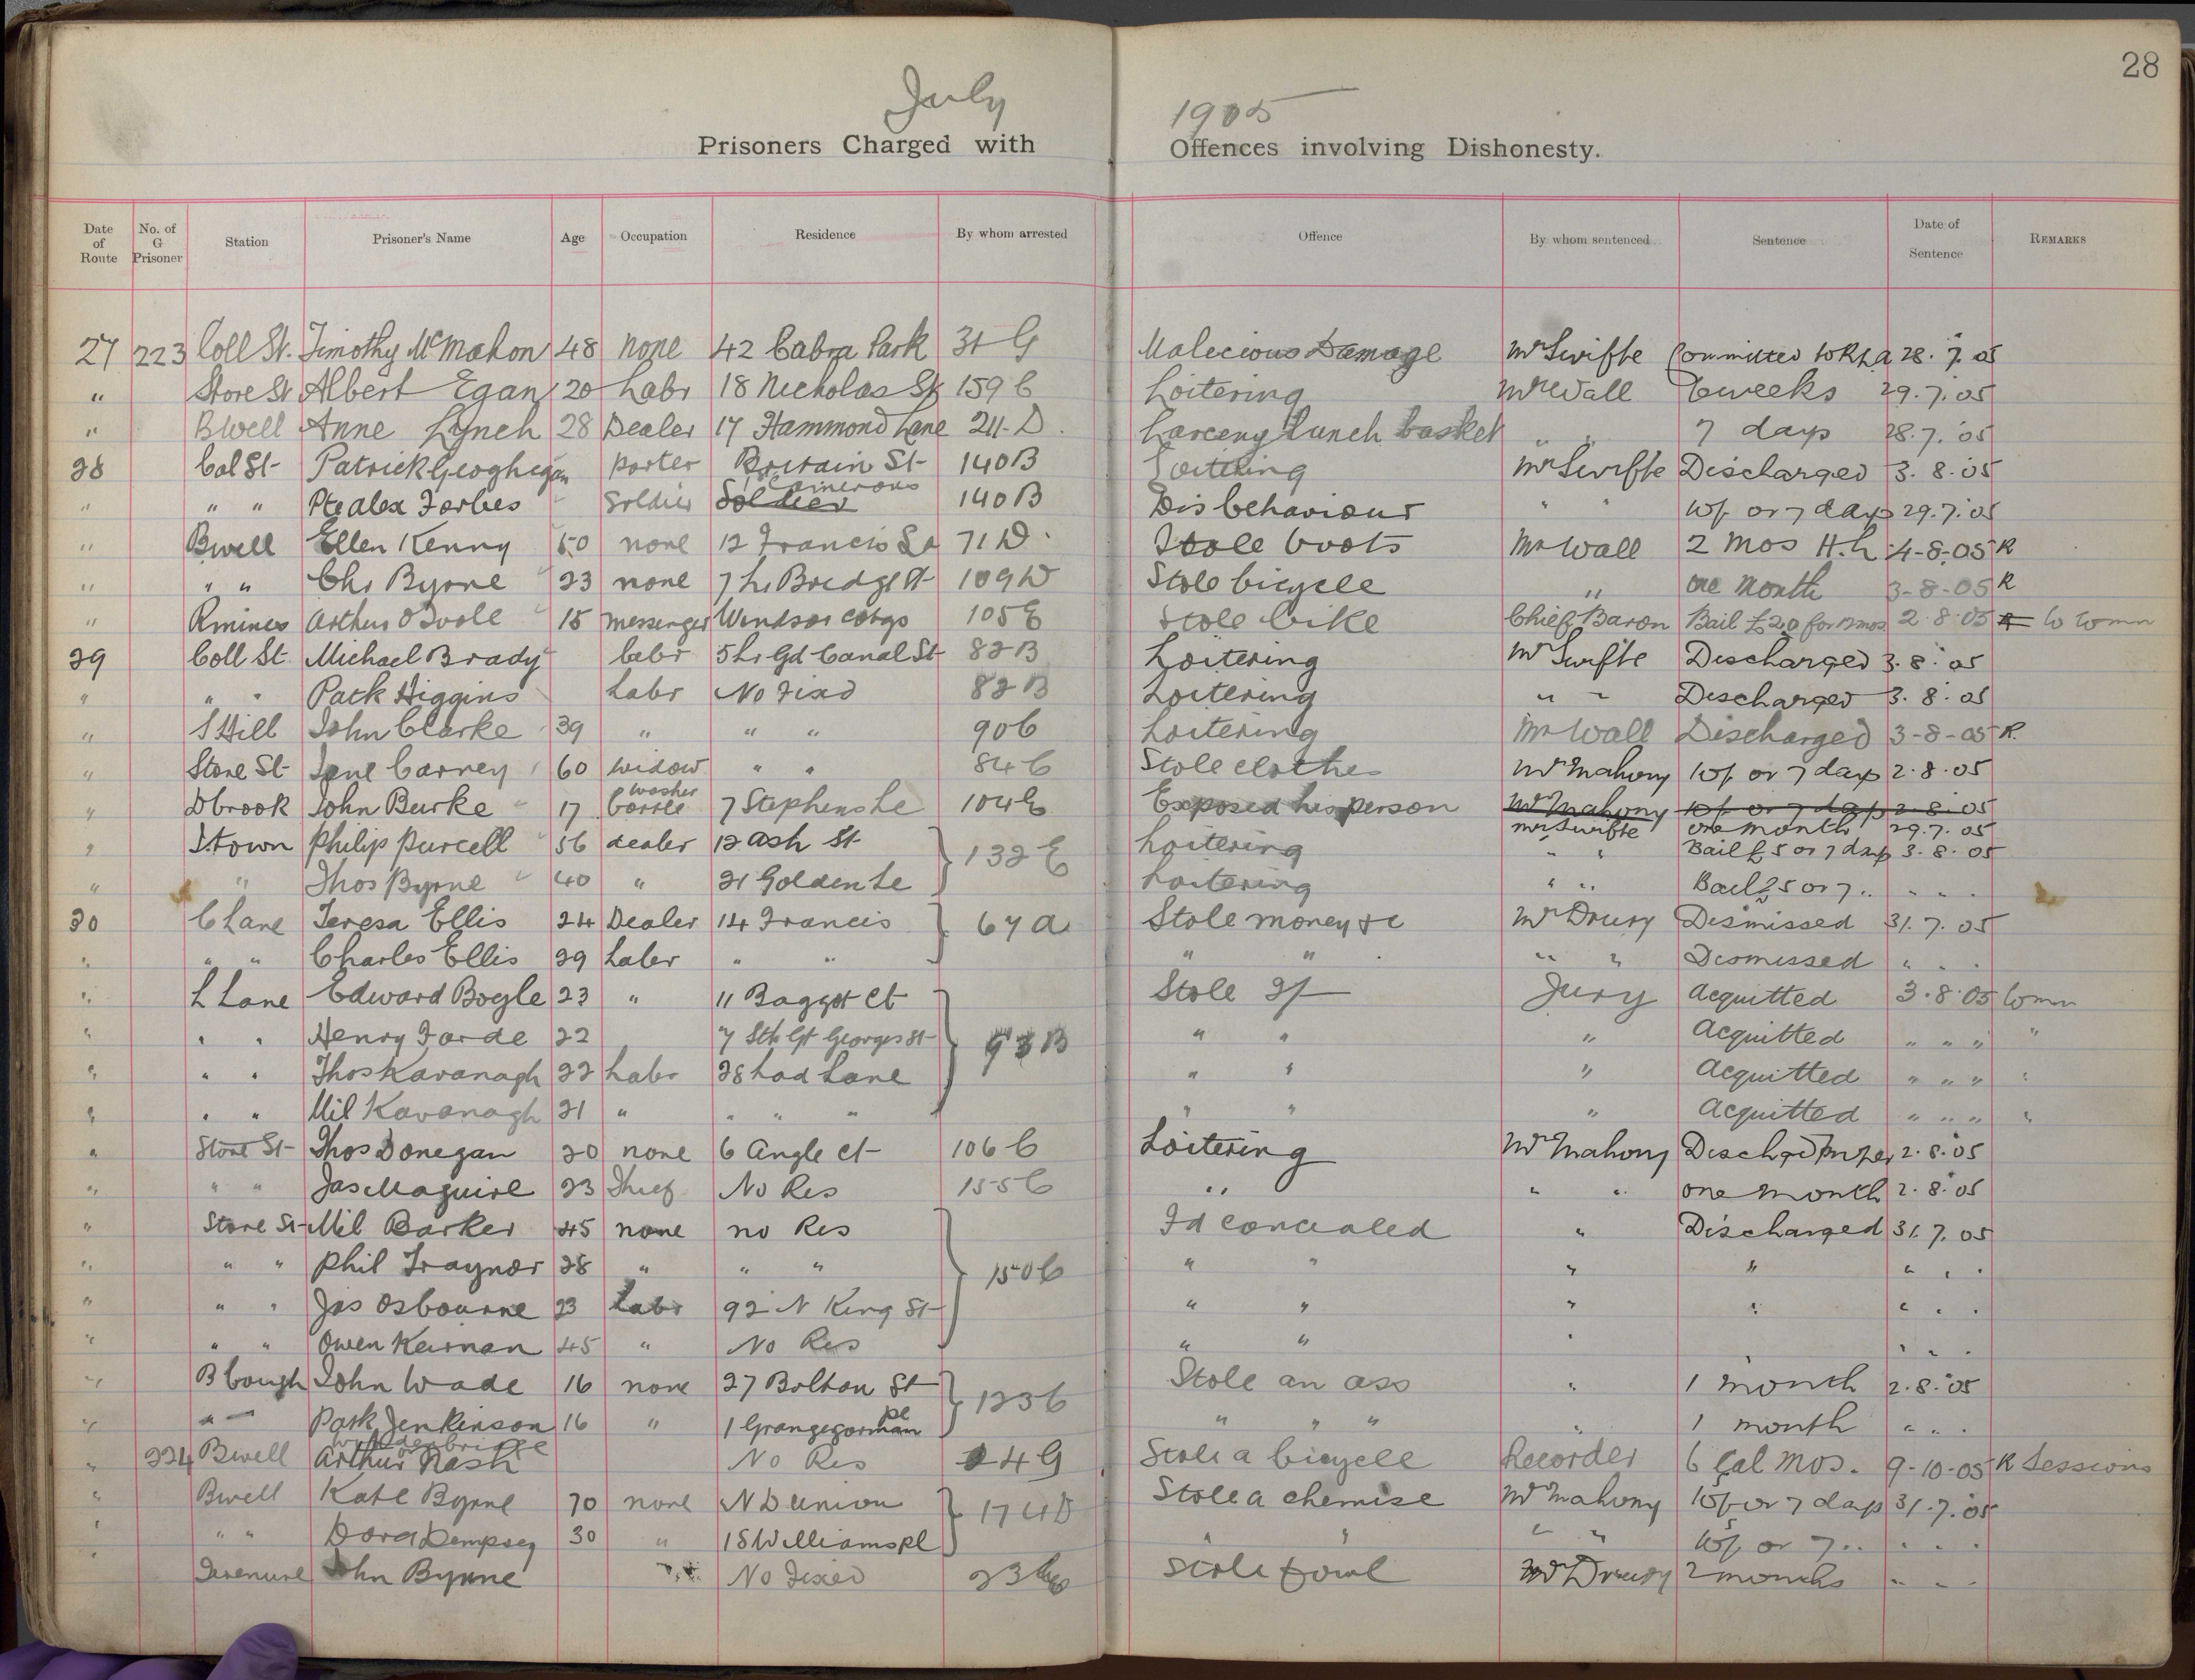 28
July 1905
Prisoners Charged with Offences involving Dishonesty.
Date of Route No. of G Prisoner Station Prisoner's Name Age Occupation Residence By whom arrested Offence By whom sentenced Sentence Date of Sentence REMARKS
27 223 Coll St. Timothy McMahon 48 none 42 Cabra Park 31 G Malecious Damage Mr Swifte Committed to R L A 28. 7. 05
" Store St Albert Egan 20 Labr 18 Nicholas St 159 C Loitering Mr Wall 6 weeks 29.7.05
" BWell Anne Lynch 28 Dealer 17 Hammond Lane 211 D. Larceny Lunch basket " " 7 days 28.7.05
28 Col St Patrick Geoghegan porter Britain St 140 B Loitering Mr Swifte Discharged 3.8.05
" " " Pte Alex Forbes soldier Soldier Camerons 140 B Disbehaviour " " 10/- or 7 days 29.7.05
" Bwell Ellen Kenny 50 none 12 Francis St 71 D. Stole boots Mr Wall 2 mos H.L. 4-8-05 R
" " " Chs Byrne 23 none 7 Lr Bridge St 109 D Stole bicycle " one month 3-8-05 R
" Rmines Arthur O'Toole 15 messenger Windsor Cotgs 105 E Stole bike Chief Baron Bail £20 for 12 mos 2.8.05 R Comn
29 Coll St Michael Brady Labr 5 Lr Gd Canal St 82 B Loitering Mr Swifte Discharged 3.8.05
" " " Patk Higgins Labr No Fixd 82 B Loitering " " Discharged 3.8.05
" S Hill John Clarke 39 " " " 90 C Loitering Mr Wall Discharged 3-8-05 R.
" Store St Jane Carney 60 widow " " 84 C Stole clothes Mr Mahony 10/- or 7 days 2.8.05
" Dbrook John Burke 17 bottle washer 7 Stephens Le 104 E Exposed his person Mr Mahony 10/- or 7 days 2.8.05
Mr Swifte one month 29.7.05
" I.town Philip Purcell 56 dealer 12 Ash St 132 E Loitering " " Bail £5 or 7 days 3.8.05
" " Thos Byrne 40 " 21 Golden Le Loitering " " Bail £5 or 7 " " " "
30 C Lane Teresa Ellis 24 Dealer 14 Francis 67 A Stole money &c Mr Drury Dismissed 31.7.05
" " " Charles Ellis 29 Labr " " " " " " Dismissed " " "
" L Lane Edward Bogle 23 " 11 Baggot Ct 93 B Stole 2/- Jury Acquitted 3.8.05 Comn
" " " Henry Forde 22 7 Sth Gt Georges St " " " Acquitted " " " "
" " " Thos Kavanagh 22 Labr 28 Lad Lane " " " Acquitted " " " "
" " " Mil Kavanagh 21 " " " " " " " Acquitted " " " "
" Store St Thos Donegan 20 none 6 Angle Ct 106 C Loitering Mr Mahony 2.8.05
" " " Jas Maguire 23 Thief No Res 155 C " " " one month 2.8.05
" Store St Mil Barker 45 none no Res 150 C Fd concealed " Discharged 31.7.05
" " " Phil Traynor 28 " " " " " " " " " "
" " " Jas Osbourne 23 Labr 92 N King St " " " " " " "
" " " Owen Keirnan 45 " No Res " " " " " "
" B Cough John Wade 16 none 27 Bolton St 123 C Stole an ass " 1 month 2.8.05
" " Patk Jenkinson 16 " 1 Grangegorman pl " " " " 1 month " " "
" 224 Bwell Arthur Nash No Res 24 G Stole a bicycle Recorder 6 Cal Mos. 9-10-05 R Sessions
" Bwell Kate Byrne 70 none N D Union 174 D Stole a chemise Mr Mahony 10/- or 7 days 31.7.05
" " " Dora Dempsey 30 " 18 Williams pl " " " " or 7 " " " "
" Terenure John Byrne No Fixed 23 Stole fowl Mr Drury 2 months " " "